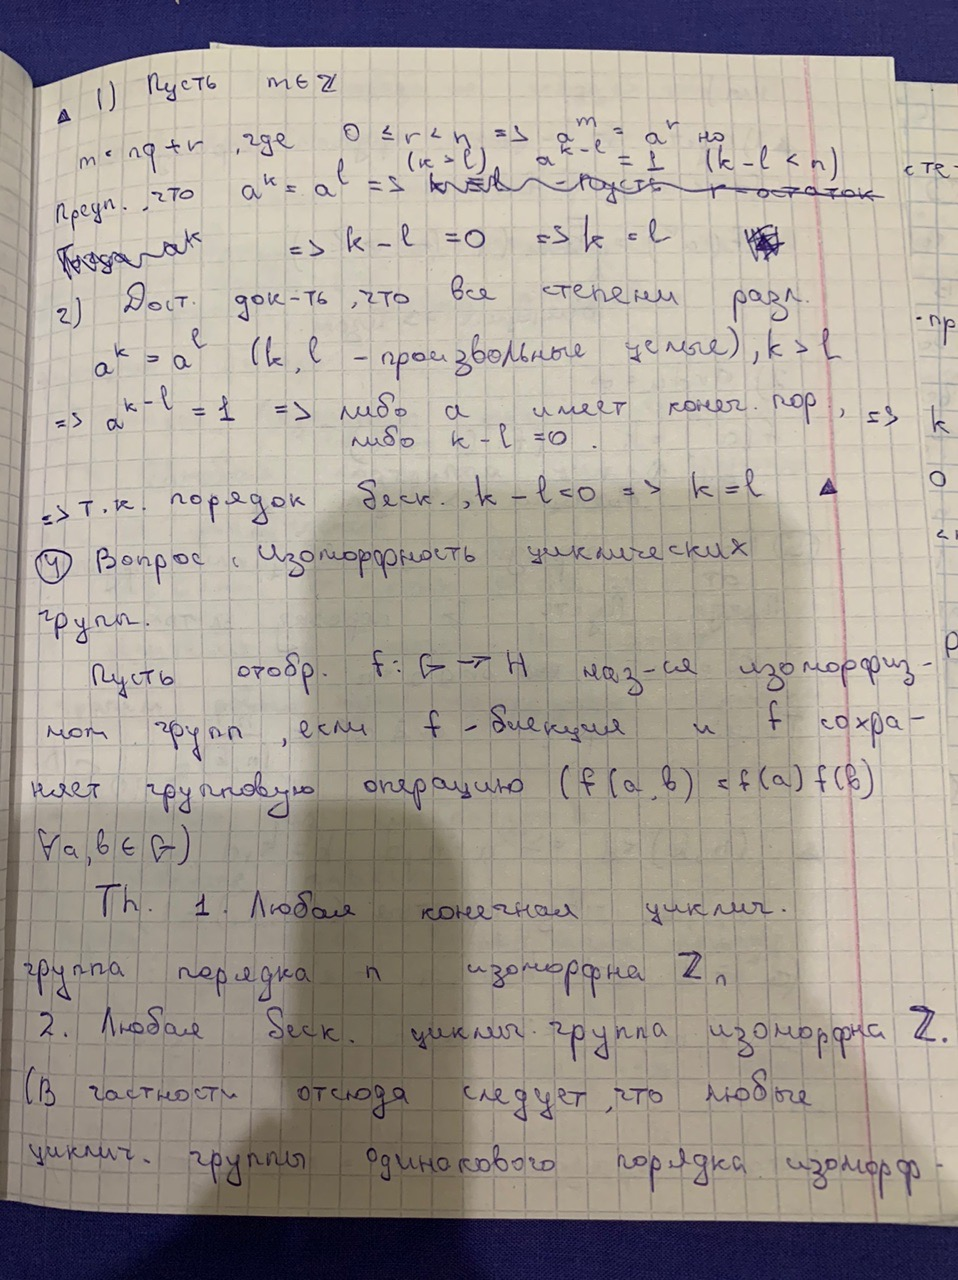 ▲ 1) Пусть m ∈ ℤ
m = nq + r, где 0 ≤ r < n => a^m = a^r но
Предп., что a^k = a^l (k > l) => a^{k-l} = 1 (k - l < n)
=> k - l = 0 => k = l
2) Дост. док-ть, что все степени разл.
a^k = a^l (k, l - произвольные целые), k > l
=> a^{k-l} = 1 => либо a имеет конеч. пор,
либо k - l = 0. =>
=> т.к. порядок беск., k - l = 0 => k = l ▲
④ Вопрос. Изоморфность циклических
групп.
Пусть отобр. f: G → H наз-ся изоморфиз-
мом групп, если f - биекция и f сохра-
няет групповую операцию (f(a, b) = f(a) f(b)
∀a, b ∈ G)
Th. 1. Любая конечная циклич.
группа порядка n изоморфна ℤ_n
2. Любая беск. циклич. группа изоморфна ℤ.
(В частности отсюда следует, что любые
циклич. группы одинакового порядка изоморф-
сте-
-пр
k
0